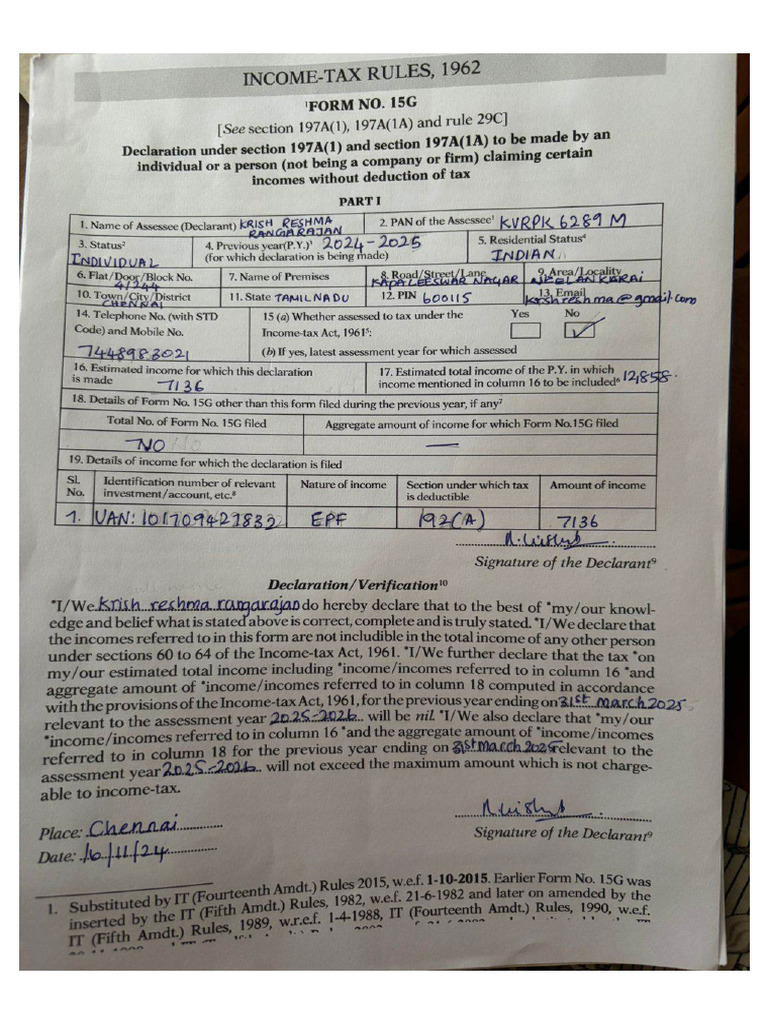 INCOME-TAX RULES, 1962
¹FORM NO. 15G
[See section 197A(1), 197A(1A) and rule 29C]
Declaration under section 197A(1) and section 197A(1A) to be made by an
individual or a person (not being a company or firm) claiming certain
incomes without deduction of tax
PART I
1. Name of Assessee (Declarant) KRISH RESHMA RANGARAJAN
2. PAN of the Assessee¹ KVRPK 6289 M
3. Status² INDIVIDUAL
4. Previous year(P.Y.)³ 2024-2025
(for which declaration is being made)
5. Residential Status⁴ INDIAN
6. Flat/Door/Block No. 4/244
7. Name of Premises
8. Road/Street/Lane KAPALEESWAR NAGAR
9. Area/Locality NEELANKARAI
10. Town/City/District CHENNAI
11. State TAMILNADU
12. PIN 600115
13. Email krishreshma@gmail.com
14. Telephone No. (with STD
Code) and Mobile No.
7448983021
15 (a) Whether assessed to tax under the
Income-tax Act, 1961⁵:
Yes No
✓
(b) If yes, latest assessment year for which assessed
16. Estimated income for which this declaration
is made 7136
17. Estimated total income of the P.Y. in which
income mentioned in column 16 to be included⁶ 12,858.
18. Details of Form No. 15G other than this form filed during the previous year, if any⁷
Total No. of Form No. 15G filed
Aggregate amount of income for which Form No.15G filed
NO —
19. Details of income for which the declaration is filed
Sl. No.
Identification number of relevant
investment/account, etc.⁸
Nature of income
Section under which tax
is deductible
Amount of income
1. UAN: 101709427832 EPF 192(A) 7136
Signature of the Declarant⁹
Declaration/Verification¹⁰
*I/We Krish reshma rangarajan do hereby declare that to the best of *my/our knowl-
edge and belief what is stated above is correct, complete and is truly stated. *I/We declare that
the incomes referred to in this form are not includible in the total income of any other person
under sections 60 to 64 of the Income-tax Act, 1961. *I/We further declare that the tax *on
my/our estimated total income including *income/incomes referred to in column 16 *and
aggregate amount of *income/incomes referred to in column 18 computed in accordance
with the provisions of the Income-tax Act, 1961, for the previous year ending on 31st March 2025
relevant to the assessment year 2025-2026 will be nil. *I/We also declare that *my/our
*income/incomes referred to in column 16 *and the aggregate amount of *income/incomes
referred to in column 18 for the previous year ending on 31st March 2025 relevant to the
assessment year 2025-2026 will not exceed the maximum amount which is not charge-
able to income-tax.
Place: Chennai
Date: 16/11/24
Signature of the Declarant⁹
1. Substituted by IT (Fourteenth Amdt.) Rules 2015, w.e.f. 1-10-2015. Earlier Form No. 15G was
inserted by the IT (Fifth Amdt.) Rules, 1982, w.e.f. 21-6-1982 and later on amended by the
IT (Fifth Amdt.) Rules, 1989, w.r.e.f. 1-4-1988, IT (Fourteenth Amdt.) Rules, 1990, w.e.f.